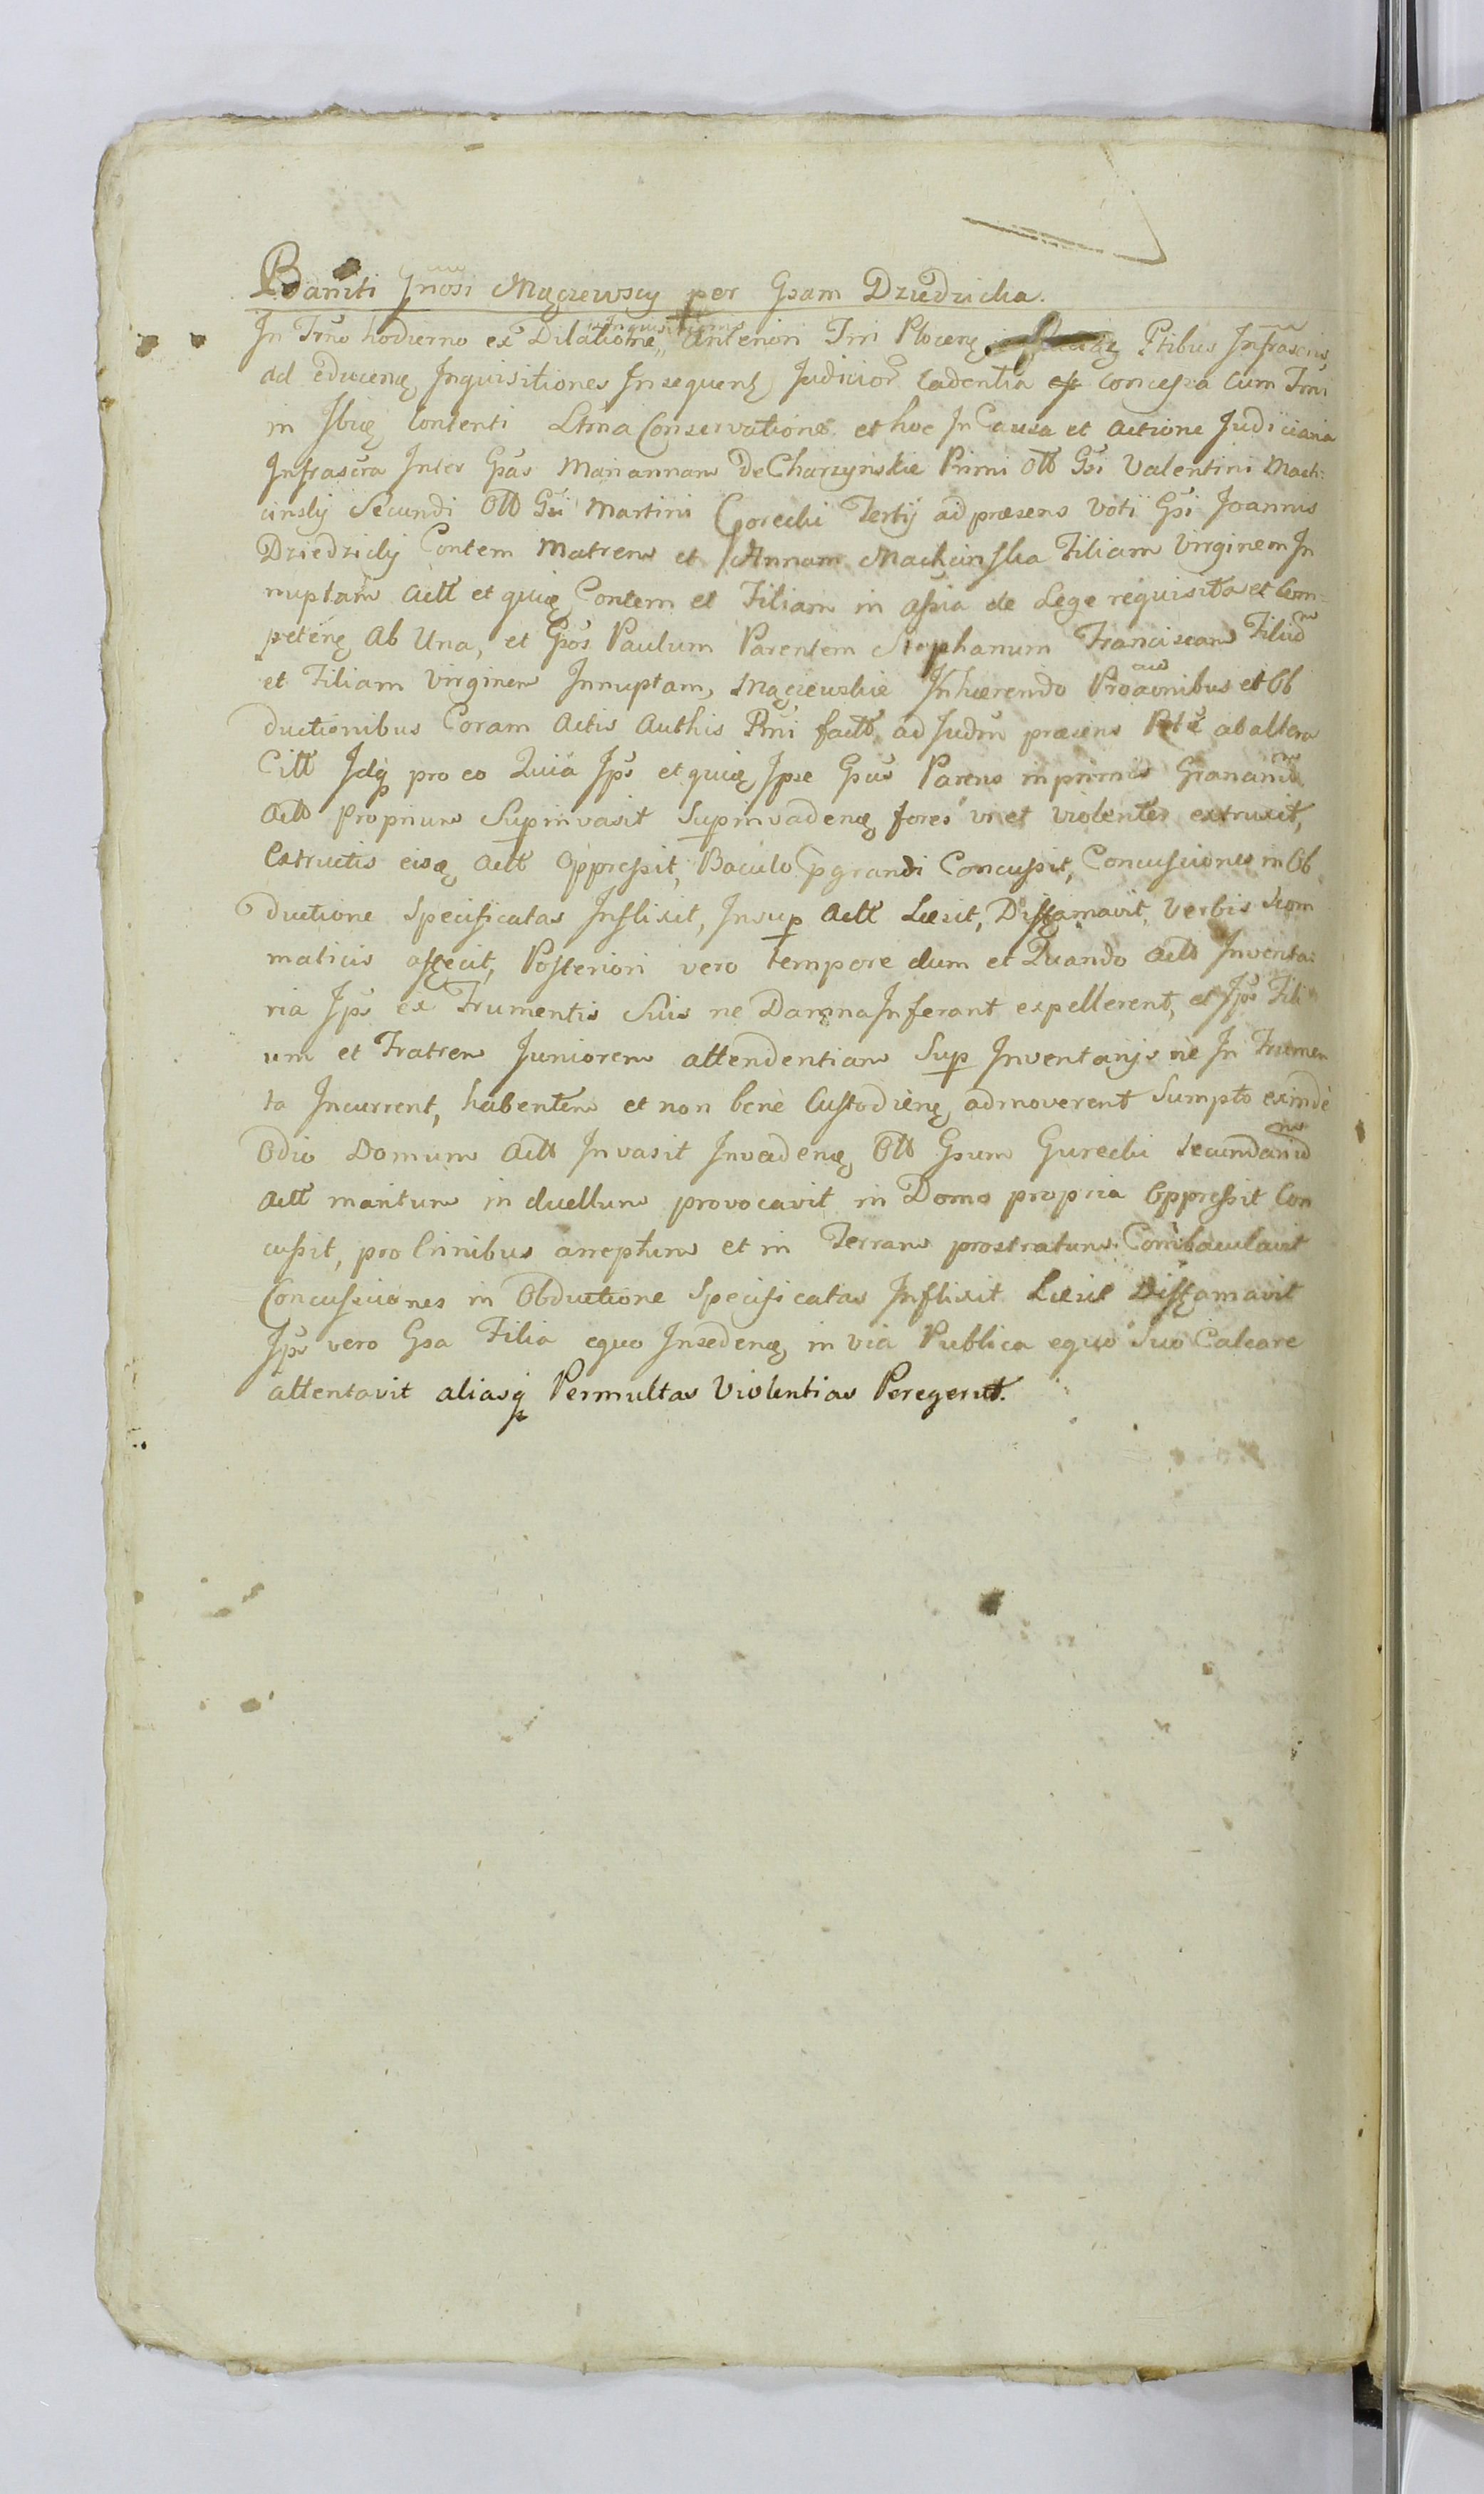 Baniti Gnosi Mączewscy per Gsam Dziedzicka.
In Trno hodierno ex Dilatione Inquisitionis Anteriori Trri Plocen Ptibus Infrascris
ad educenę Inquisitiones Insequenti Judicior cadentia est concessa cum Trni
in Ibię Contenti Ltma Conservatione et hoc In Causa et actione Judiciaria
Infrascra Inter Gsas Mariannam de Charzyńskie Primi Olt Gsi Valentini Mach:
cinsky Secundi Olt Gsi Martini Gorecki Tertij ad præsens voti Gsi Joannis
Dziedzicky Contem Matrem et Annam Machcinska Filiam Virginem In
nuptam Actt et quię Contem et Filiam in assia de Lege requisita et Com=
petenę ab Una, et Gsos Paulum Parentem Stephanum Franciscam Filiū
et Filiam Virginem Innuptam, Mączewskie Inhærendo Proaōnibus et Ob
ductionibus Coram Actis Authis Pmi factis ad Judm præsens Pte ab altera
Citt Idq pro eo Quia Ips et quię Ipse Gsus Parens in primis Granariū
Actt Proprium Supinvasit Supinvadenę fores vi et violenter extruxit,
Extructis eisę Actt Oppressit, Baculo pgrandi Concussit, Concussiones in Ob
ductione Specificatas Inflixit, Insup Actt Læsit, Diffamavit, Verbis Scom
maticis affecit, Posteriori vero tempore dum et Quando Actt Inventa:
ria Ips ex Frumentis Suis ne Damna Inferant expellerent, et Ips Fili
um et Fratrem Juniorem attendentiam Sup Inventarijs ne In Frumen
ta Incurrent, habentem et non bene Custodienę, admoverent Sumpto exinde
Odio Domum Actt Invasit Invadenę Olt Gsum Gurecki secundariū
Actt maritum in duellum provocavit in Domo propria Oppressit Con
cussit, pro Crinibus arreptum et in Terram prostratum Combaculavit
Concussiones in Obductione Specificatas Inflixit Læsit Diffamavit
Ips vero Gsa Filia equo Insedenę in via Publica equo Suo Calcare
attentavit aliasq Permultas Violentias Peregerut.